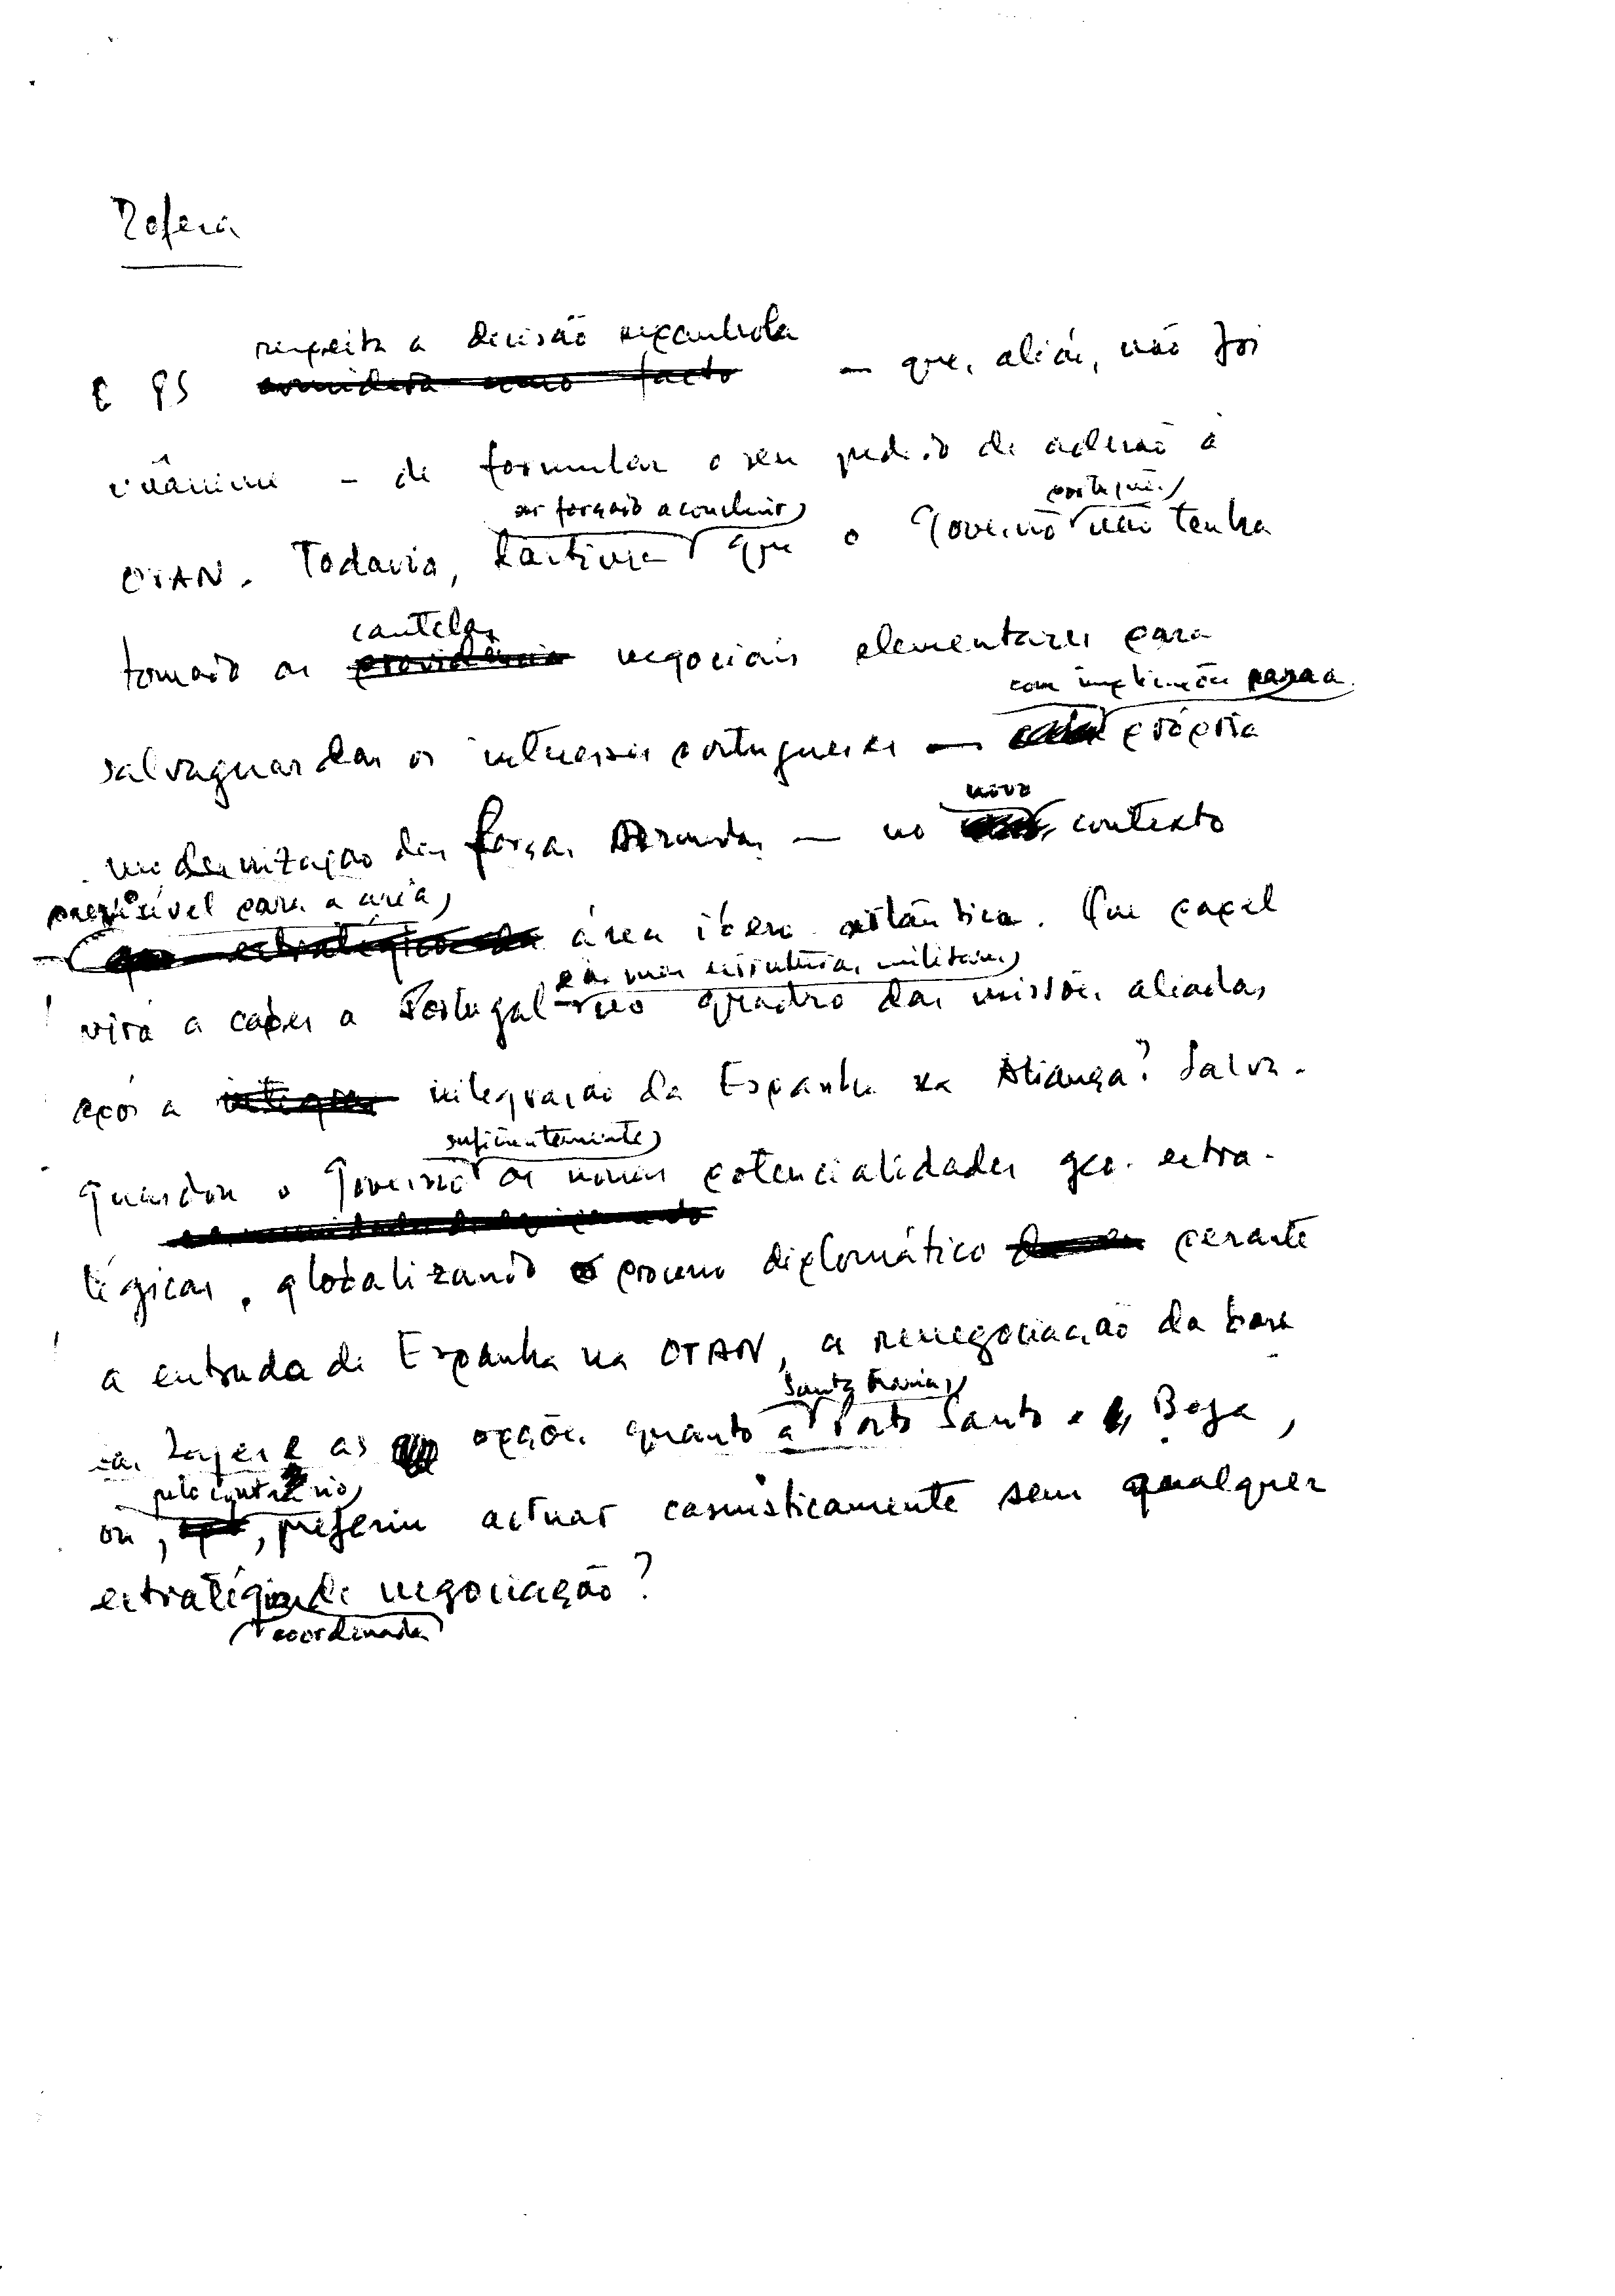 Defesa
respeita a decisão espanhola
O PS considera como facto — que, aliás, não foi
unânime — de formular o seu pedido de adesão à
ser forçado a concluir
português
OTAN. Todavia, lastima que o Governo não tenha
cautelas
tomado as providências negociais elementares para
com implicações para a
salvaguardar os interesses portugueses — própria
modernização das Forças Armadas — no
novo
contexto
previsível para a área,
estratégico da área ibero-atlântica. Que papel
e às suas estruturas militares
virá a caber a Portugal no quadro das missões aliadas
após a integração da Espanha na Aliança? Salva-
suficientemente
guardou o Governo as novas potencialidades geo-estra-
tégicas, globalizando o processo diplomático perante
a entrada de Espanha na OTAN, a renegociação da base
Santa Maria,
das Lajes e as opções quanto a Porto Santo e Beja,
pelo contrário,
ou, preferiu actuar casuisticamente sem qualquer
estratégia de negociação?
coordenada